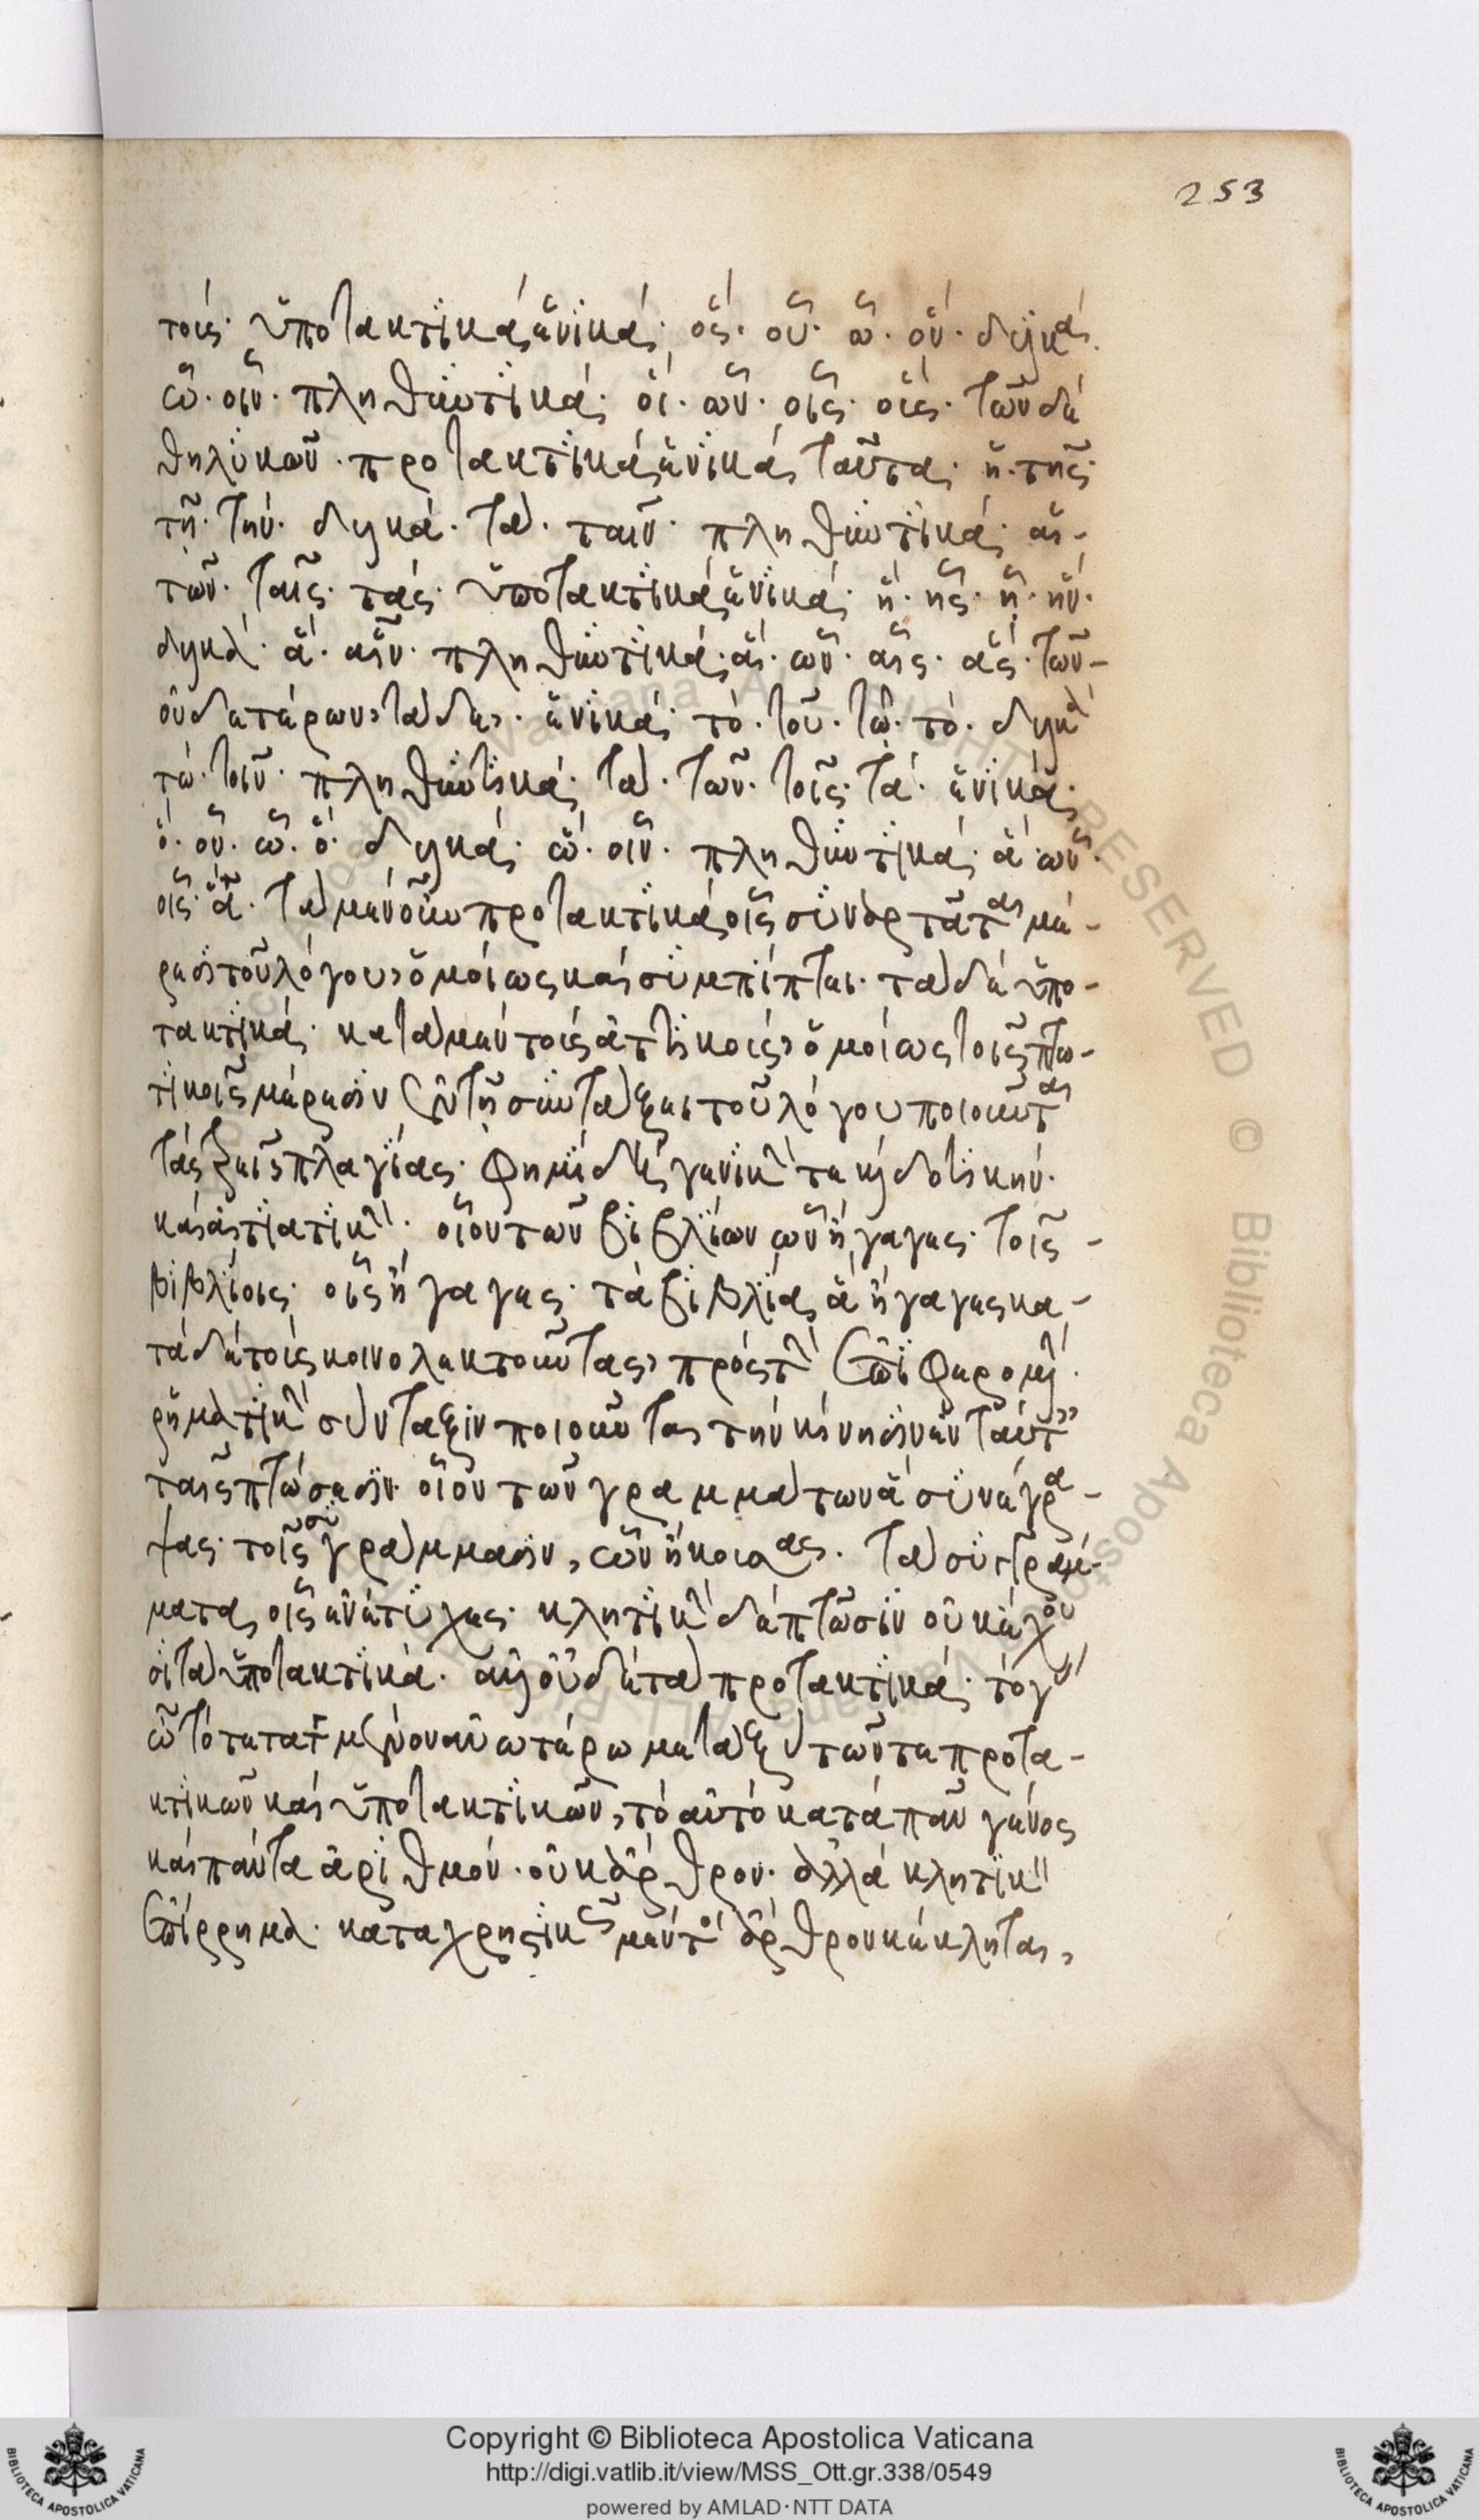 253
τούς· ὑποτακτικὰ ἑνικά· ὅς· οὗ· ᾧ· ὅν· δυϊκά.
ὥ· οἷν· πληθυντικά· οἵ· ὧν· οἷς· οὕς· τῶν δὲ
θηλυκῶν· προτακτικὰ ἑνικὰ ταῦτα· ἡ· τῆς·
τῇ· τήν· δυϊκά· τά· ταῖν· πληθυντικά· αἱ-
τῶν· ταῖς· τάς· ὑποτακτικὰ ἑνικά· ἥ· ἧς· ᾗ· ἥν·
δυϊκά· ἅ· αἷν· πληθυντικά· αἵ· ὧν· αἷς· ἅς· τῶν-
οὐδετέρων τάδε· ἑνικά· τό· τοῦ· τῷ· τό· δυϊκὰ
τώ· τοῖν· πληθυντικά· τά· τῶν· τοῖς· τά· ἑνικά·
ὅ· οὗ· ᾧ· ὅ· δυϊκά· ὥ· οἷν· πληθυντικά· ἅ· ὧν·
οἷς· ἅ· τὰ μὲν οὖν προτακτικὰ οἷς συντάττεται μέ-
ρεσι τοῦ λόγου ὁμοίως καὶ συμπίπτει· τὰ δὲ ὑπο-
τακτικά· κατὰ μὲν τοὺς ἀττικοὺς ὁμοίως τοῖς πτω-
τικοῖς μέρεσιν ἐν τῇ συντάξει τοῦ λόγου ποιοῦνται
τὰς τρεῖς πλαγίας· φημὶ δὲ γενικήν τε καὶ δοτικήν·
καὶ αἰτιατικήν· οἷον τῶν βιβλίων ὧν ἤγαγες· τοῖς-
βιβλίοις· οἷς ἤγαγες· τὰ βιβλία, ἃ ἤγαγες κα-
τὰ δὲ τοὺς κοινολεκτοῦντας πρὸς τὴν ἐπιφερομένην
ῥηματικὴν σύνταξιν ποιοῦνται τὴν κίνησιν ἐν ταύταις
ταῖς πτώσεσιν· οἷον τῶν γραμμάτων ἃ συνέγρα-
ψας· τοῖς συγγράμμασιν, ὧν ἤκουσας· τὰ συγγράμ-
ματα, οἷς ἐνέτυχες· κλητικὴν δὲ πτῶσιν οὐκ ἔχου
σι τὰ ὑποτακτικά· ἀλλ' οὐδὲ τὰ προτακτικά· τὸ γὰρ
ὦ τὸ τεταγμένον ἀνωτέρω μεταξὺ τῶν τε προτα-
κτικῶν καὶ ὑποτακτικῶν, τὸ αὐτὸ κατὰ πᾶν γένος
καὶ πάντα ἀριθμόν· οὐκ ἄρθρον· ἀλλὰ κλητικὸν
ἐπίρρημα· καταχρηστικῶς μέντοι ἄρθρον κέκληται,
Copyright © Biblioteca Apostolica Vaticana
http://digi.vatlib.it/view/MSS_Ott.gr.338/0549
powered by AMLAD·NTT DATA